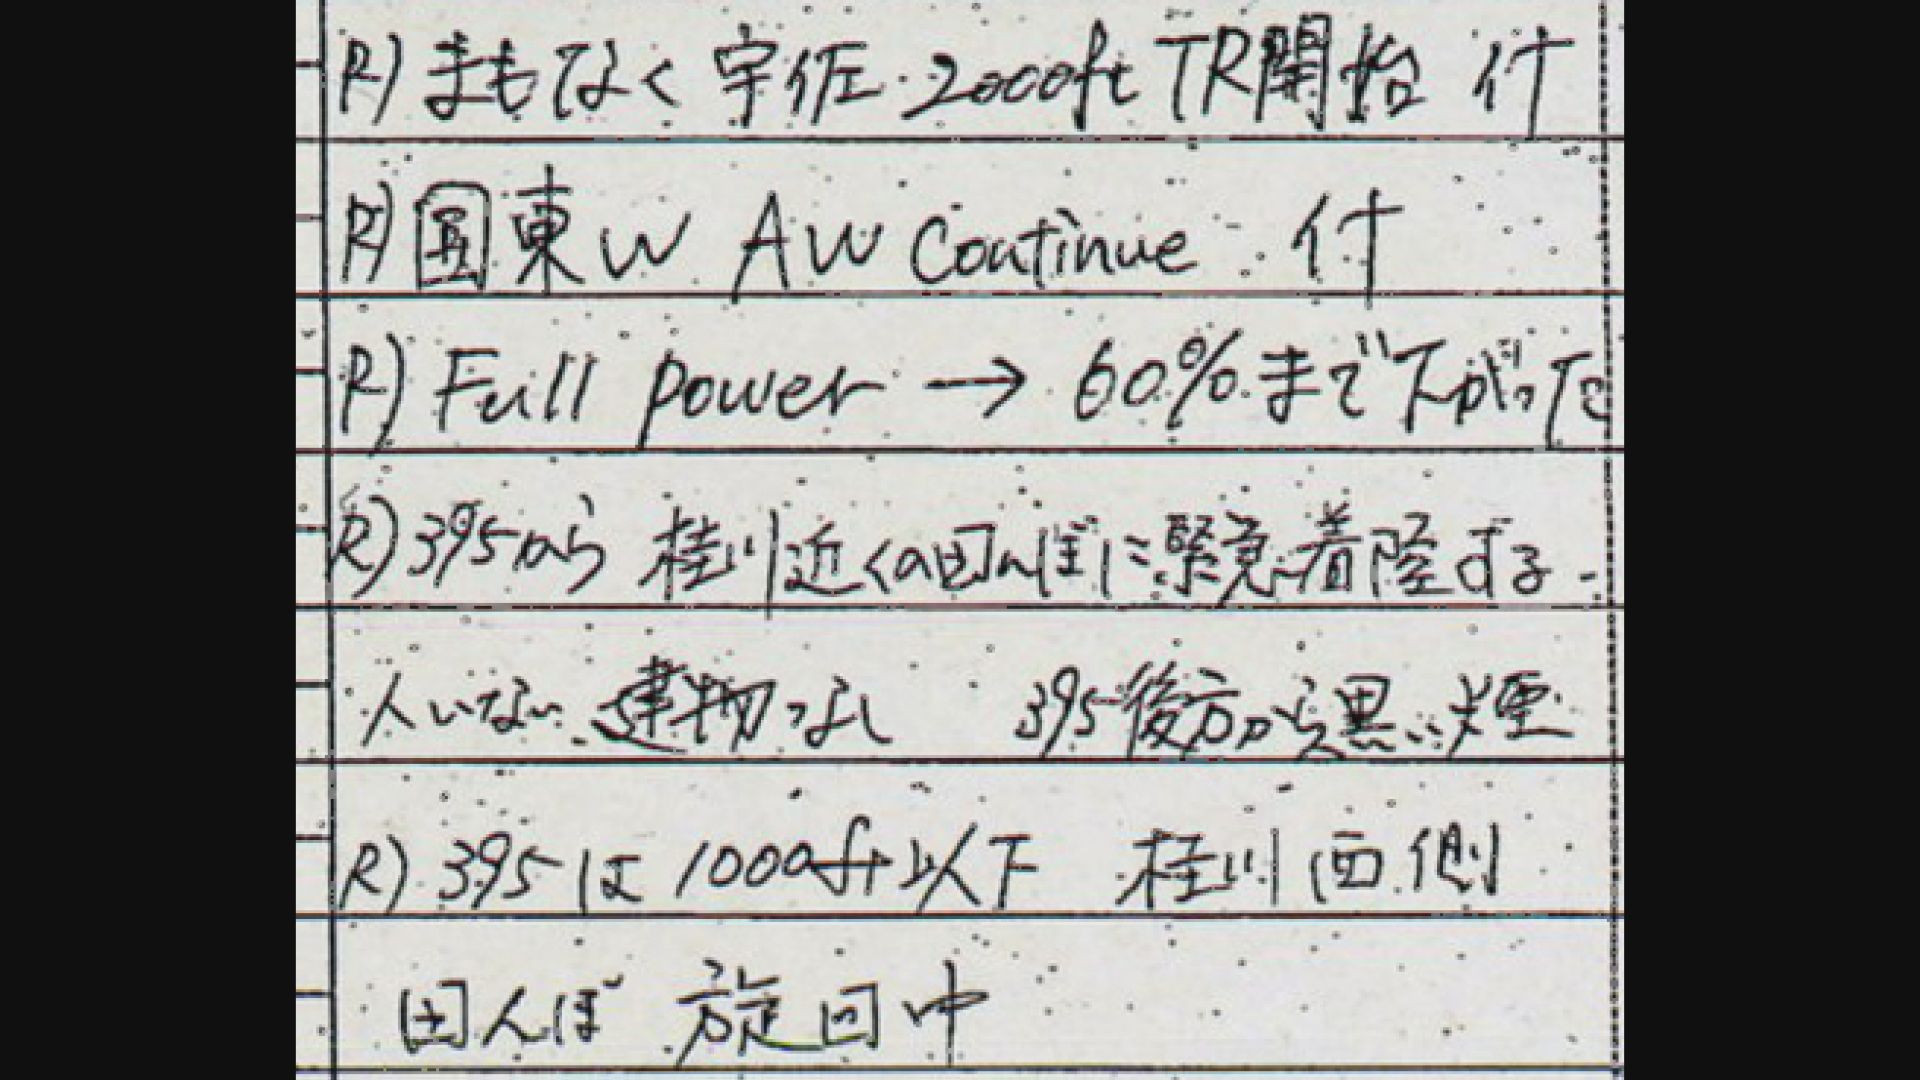 R) まもなく 宇佐 2000ft TR開始 付
R) 国東W AW Continue 付
R) Full power → 60%まで下がった
R) 395から 桂川近くの田んぼに緊急着陸する
人いない 建物なし 395後方から黒い煙
R) 395は 1000ft以下 桂川西側
田んぼ 旋回中